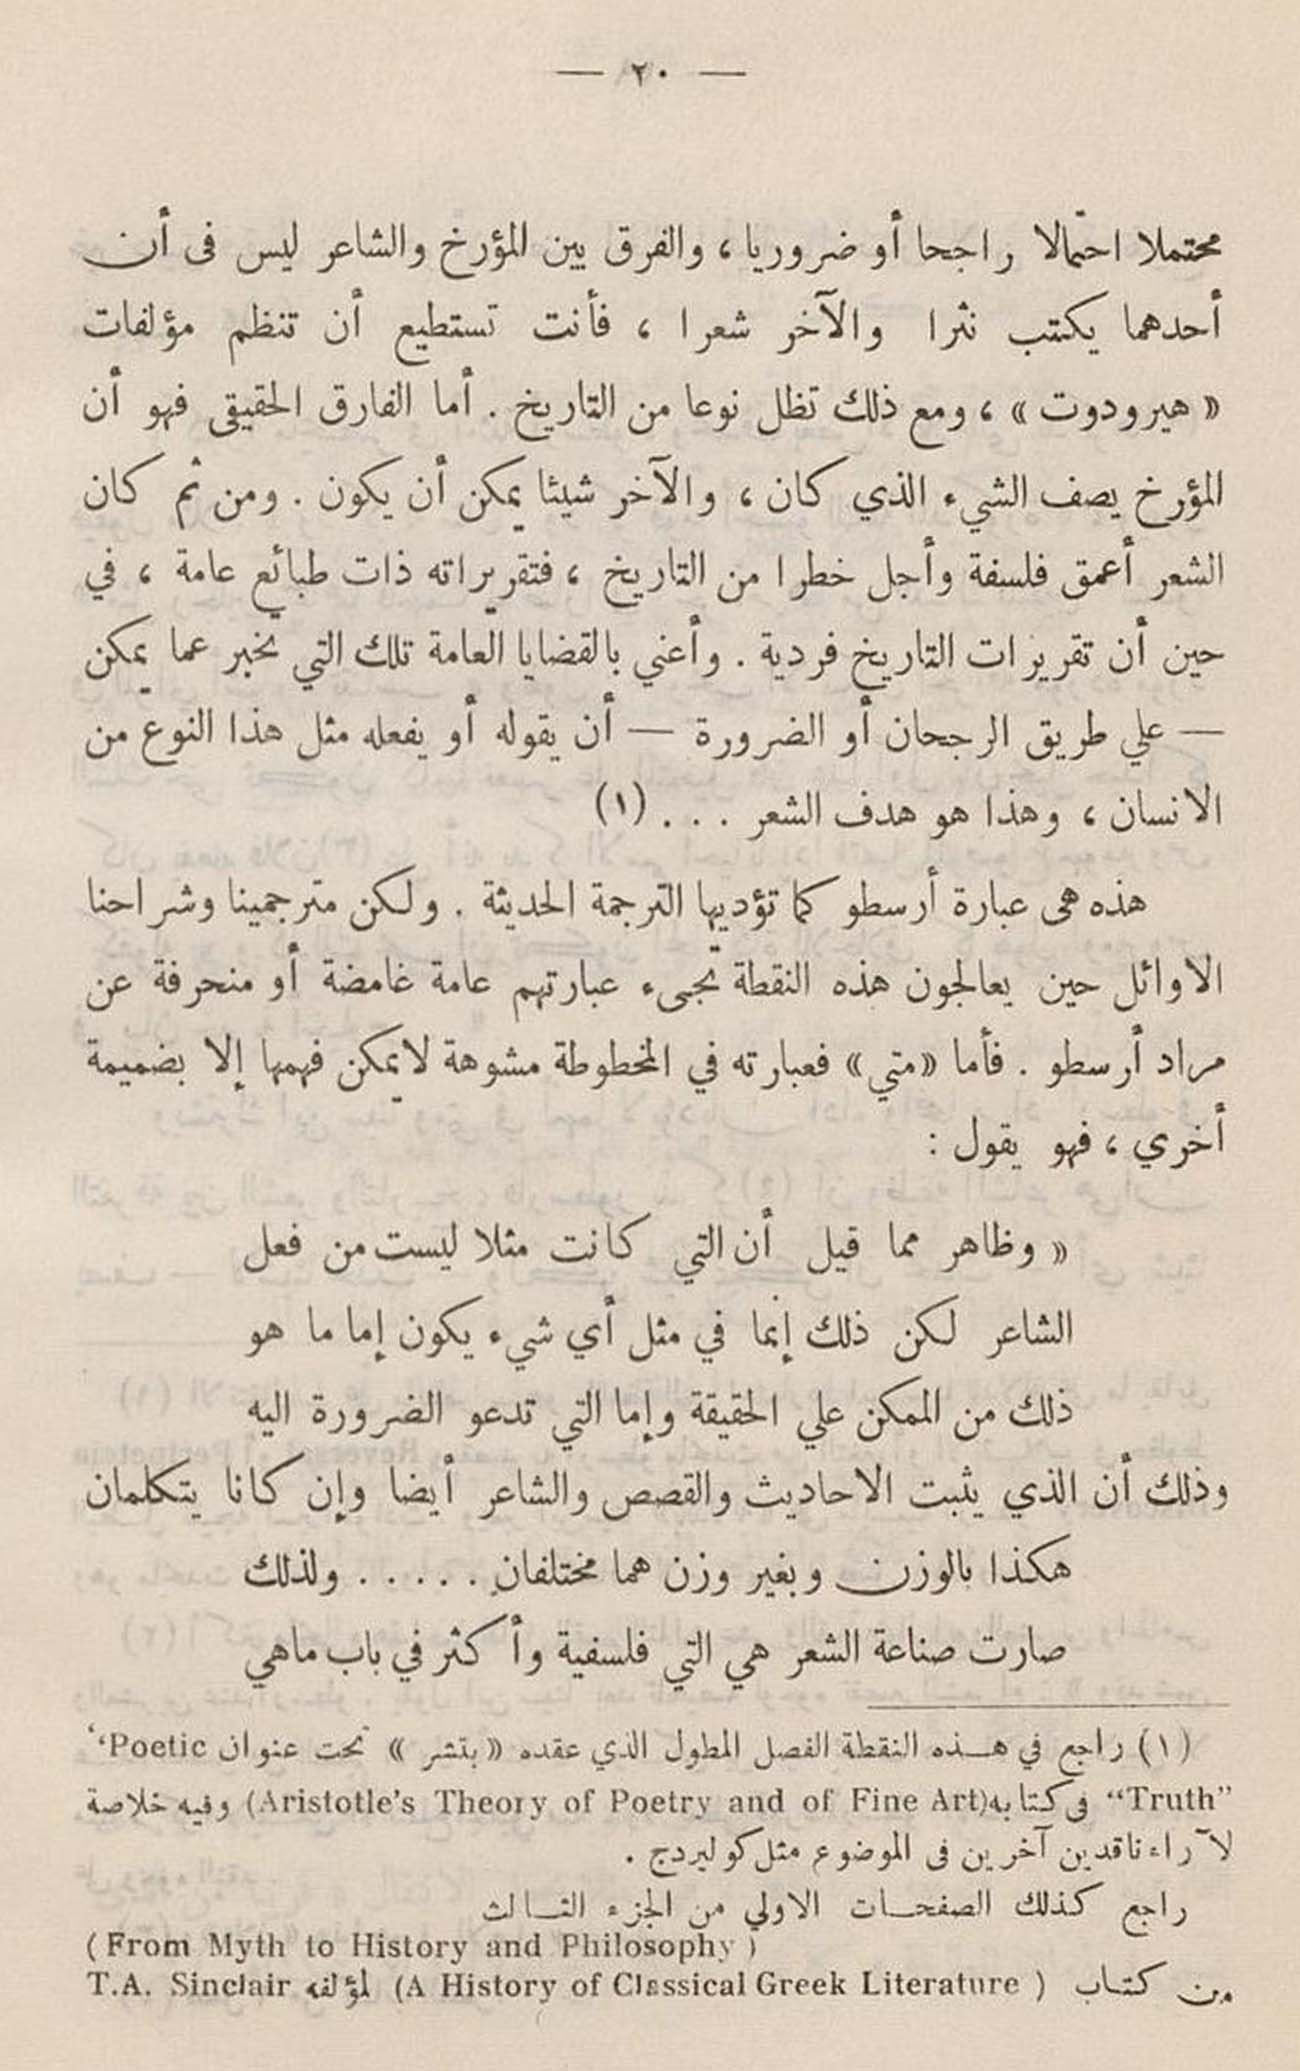 — ٢٠ —
محتملا احتمالا راجحا أو ضروريا ، والفرق بين المؤرخ والشاعر ليس فى أن
أحدهما يكتب نثرا والآخر شعرا ، فأنت تستطيع أن تنظم مؤلفات
« هيرودوت » ، ومع ذلك تظل نوعا من التاريخ . أما الفارق الحقيقى فهو أن
المؤرخ يصف الشيء الذي كان ، والآخر شيئا يمكن أن يكون . ومن ثم كان
الشعر أعمق فلسفة وأجل خطرا من التاريخ ، فتقريراته ذات طبائع عامة ، في
حين أن تقريرات التاريخ فردية . وأعني بالقضايا العامة تلك التي تخبر عما يمكن
— علي طريق الرجحان أو الضرورة — أن يقوله أو يفعله مثل هذا النوع من
الانسان ، وهذا هو هدف الشعر . . . (١)
هذه هى عبارة أرسطو كما تؤديها الترجمة الحديثة . ولكن مترجمينا وشراحنا
الاوائل حين يعالجون هذه النقطة تجىء عبارتهم عامة غامضة أو منحرفة عن
مراد أرسطو . فأما «متي» فعبارته في المخطوطة مشوهة لايمكن فهمها إلا بضميمة
أخري ، فهو يقول :
« وظاهر مما قيل أن التي كانت مثلا ليست من فعل
الشاعر لكن ذلك إنما في مثل أي شيء يكون إما ما هو
ذلك من الممكن علي الحقيقة وإما التي تدعو الضرورة اليه
وذلك أن الذي يثبت الاحاديث والقصص والشاعر أيضا وإن كانا يتكلمان
هكذا بالوزن وبغير وزن هما مختلفان . . . . . ولذلك
صارت صناعة الشعر هي التي فلسفية وأكثر في باب ماهي
(١) راجع في هـذه النقطة الفصل المطول الذي عقده « بتشر » تحت عنوان "Poetic
Truth" فى كتابه (Aristotle's Theory of Poetry and of Fine Art) وفيه خلاصة
لآراء ناقدين آخرين فى الموضوع مثل كولبردج .
راجع كذلك الصفحـات الاولي من الجزء الثـالث
( From Myth to History and Philosophy )
من كتـاب ( A History of Classical Greek Literature ) لمؤلفه T.A. Sinclair